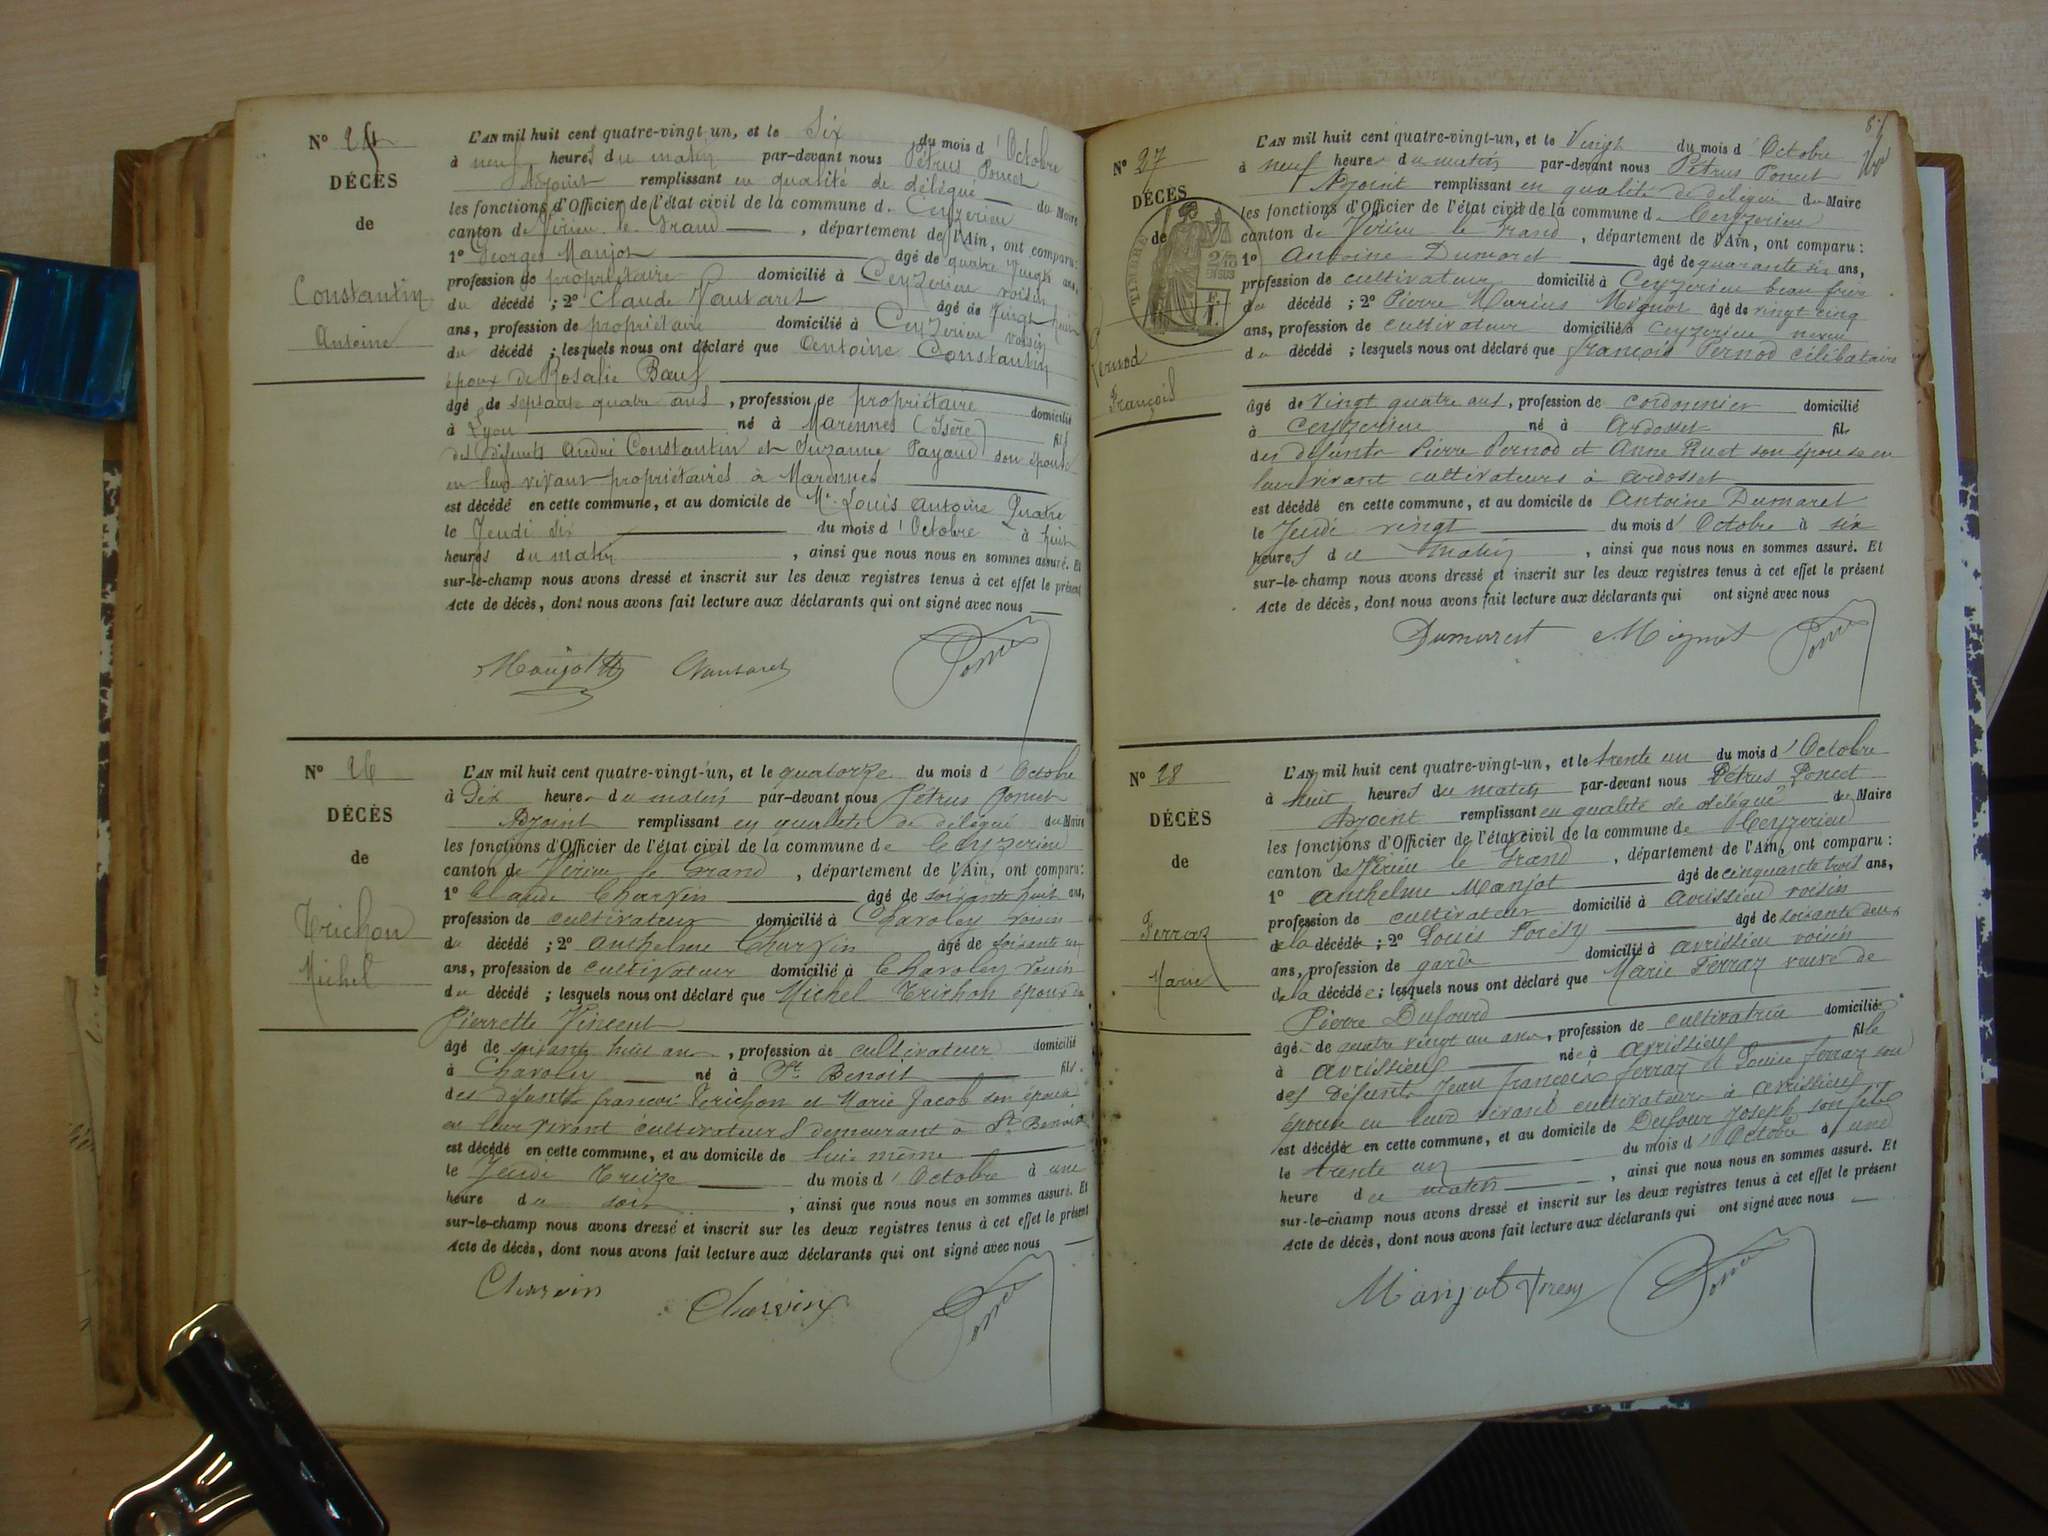 N° 25
DÉCÈS
de
Constantin
Antoine
L'AN mil huit cent quatre-vingt un, et le Six du mois d'Octobre
à neuf heures du matin par-devant nous Pétrus Poncet
Adjoint remplissant en qualité de délégué du Maire
les fonctions d'Officier de l'état civil de la commune de Ceyzerieu
canton de Virieu le Grand, département de l'Ain, ont comparu :
1° Georges Manjot âgé de quatre vingts ans,
profession de propriétaire domicilié à Ceyzerieu voisin
du décédé ; 2° Claude Vautaret âgé de vingt huit
ans, profession de propriétaire domicilié à Ceyzerieu voisin
du décédé ; lesquels nous ont déclaré que Antoine Constantin
époux de Rosalie Bœuf
âgé de septante quatre ans, profession de propriétaire domicilié
à Lyon né à Marennes (Isère) fils
des défunts André Constantin et Suzanne Payaud son épouse
en leur vivant propriétaires à Marennes
est décédé en cette commune, et au domicile de Mr. Louis Antoine Quatre
le Jeudi six du mois d'Octobre à huit
heures du matin, ainsi que nous nous en sommes assuré. Et
sur-le-champ nous avons dressé et inscrit sur les deux registres tenus à cet effet le présent
Acte de décès, dont nous avons fait lecture aux déclarants qui ont signé avec nous
Manjot Vautaret Poncet
N° 26
DÉCÈS
de
Trichon
Michel
L'AN mil huit cent quatre-vingt-un, et le quatorze du mois d'Octobre
à Dix heures du matin par-devant nous Pétrus Poncet
Adjoint remplissant en qualité de délégué du Maire
les fonctions d'Officier de l'état civil de la commune de Ceyzerieu
canton de Virieu le Grand, département de l'Ain, ont comparu :
1° Claude Charvin âgé de soixante huit ans,
profession de cultivateur domicilié à Chavoley voisin
du décédé ; 2° Anthelme Charvin âgé de soixante un
ans, profession de cultivateur domicilié à Chavoley voisin
du décédé ; lesquels nous ont déclaré que Michel Trichon époux de
Pierrette Vincent
âgé de soixante huit ans, profession de cultivateur domicilié
à Chavoley né à St. Benoit fils
des défunts françois Trichon et Marie Jacob son épouse
en leur vivant cultivateurs demeurant à St. Benoit
est décédé en cette commune, et au domicile de lui-même
le Jeudi Treize du mois d'Octobre à une
heure du soir, ainsi que nous nous en sommes assuré. Et
sur-le-champ nous avons dressé et inscrit sur les deux registres tenus à cet effet le présent
Acte de décès, dont nous avons fait lecture aux déclarants qui ont signé avec nous
Charvin Charvin Poncet
87
N° 27
DÉCÈS
de
TIMBRE
2/10
EN SUS
Pernod
François
L'AN mil huit cent quatre-vingt-un, et le Vingt du mois d'Octobre
à neuf heures du matin par-devant nous Pétrus Poncet
Adjoint remplissant en qualité de délégué du Maire
les fonctions d'Officier de l'état civil de la commune de Ceyzerieu
canton de Virieu le Grand, département de l'Ain, ont comparu :
1° Antoine Dumaret âgé de quarante six ans,
profession de cultivateur domicilié à Ceyzerieu beau frère
du décédé ; 2° Pierre Marius Mignot âgé de vingt cinq
ans, profession de cultivateur domicilié à Ceyzerieu neveu
du décédé ; lesquels nous ont déclaré que françois Pernod célibataire
âgé de vingt quatre ans, profession de cordonnier domicilié
à Ceyzerieu né à Ardosset fils
des défunts Pierre Pernod et Anne Ruet son épouse en
leur vivant cultivateurs à Ardosset
est décédé en cette commune, et au domicile de Antoine Dumaret
le Jeudi vingt du mois d'Octobre à six
heures du matin, ainsi que nous nous en sommes assuré. Et
sur-le-champ nous avons dressé et inscrit sur les deux registres tenus à cet effet le présent
Acte de décès, dont nous avons fait lecture aux déclarants qui ont signé avec nous
Dumarest Mignot Poncet
N° 28
DÉCÈS
de
Ferraz
Marie
L'AN mil huit cent quatre-vingt-un, et le trente un du mois d'Octobre
à huit heures du matin par-devant nous Pétrus Poncet
Adjoint remplissant en qualité de délégué du Maire
les fonctions d'Officier de l'état civil de la commune de Ceyzerieu
canton de Virieu le Grand, département de l'Ain, ont comparu :
1° Anthelme Manjot âgé de cinquante trois ans,
profession de cultivateur domicilié à Avrissieu voisin
de la décédée ; 2° Louis Forésy âgé de soixante deux
ans, profession de garde domicilié à avrissieu voisin
de la décédée ; lesquels nous ont déclaré que Marie Ferraz veuve de
Pierre Dufourd
âgée de quatre vingt un ans, profession de cultivatrice domiciliée
à avrissieu née à avrissieu fille
des défunts Jean françois ferraz et Louise ferraz son
épouse en leur vivant cultivateurs à avrissieu
est décédée en cette commune, et au domicile de Dufour Joseph son fils
le trente un du mois d'Octobre à une
heure du matin, ainsi que nous nous en sommes assuré. Et
sur-le-champ nous avons dressé et inscrit sur les deux registres tenus à cet effet le présent
Acte de décès, dont nous avons fait lecture aux déclarants qui ont signé avec nous
Manjot Poncet